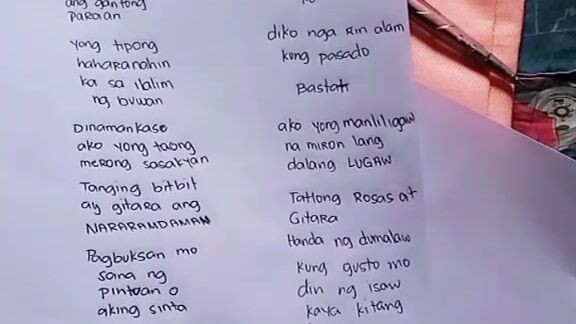 ang gantong
paraan
yong tipong
haharanahin
ka sa ilalim
ng buwan
Dinamankase
ako yong taong
merong sasakyan
Tanging bitbit
ay gitara ang
NARARAMDAMAN
Pagbuksan mo
sana ng
pintoan o
aking sinta
diko nga rin alam
kung pasado
Basta
ako yong manliligaw
na miron lang
dalang LUGAW
Tatlong Rosas at
Gitara
Handa ng dumalaw
kung gusto mo
din ng isaw
kaya kitang